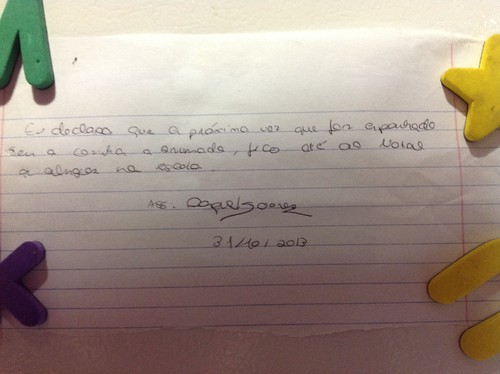 Eu declaro que a próxima vez que for apanhado
sem a cama arrumada, fico até ao Natal
a almoçar na escola.
Ass:
31/10/2013